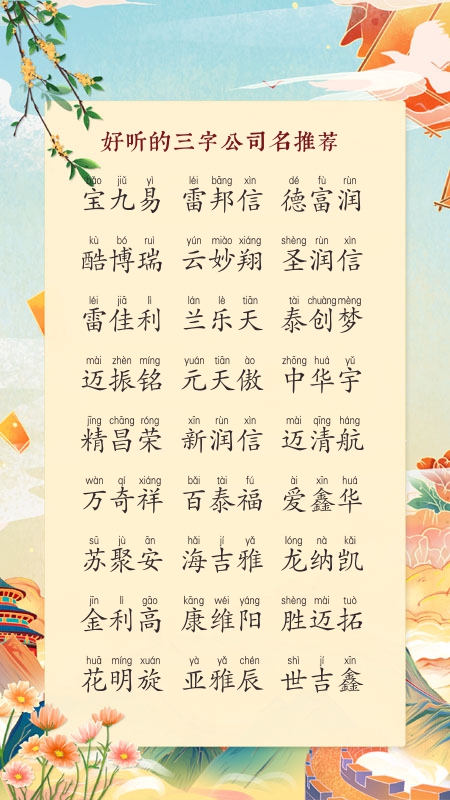 好听的三字公司名推荐
bǎo jiǔ yì léi bāng xìn dé fù rùn
宝九易 雷邦信 德富润
kù bó ruì yún miào xiáng shèng rùn xìn
酷博瑞 云妙翔 圣润信
léi jiā lì lán lè tiān tài chuàng mèng
雷佳利 兰乐天 泰创梦
mài zhèn míng yuán tiān ào zhōng huá yǔ
迈振铭 元天傲 中华宇
jīng chāng róng xīn rùn xìn mài qīng háng
精昌荣 新润信 迈清航
wàn qí xiáng bǎi tài fú ài xīn huá
万奇祥 百泰福 爱鑫华
sū jù ān hǎi jí yǎ lóng nà kǎi
苏聚安 海吉雅 龙纳凯
jīn lì gāo kāng wéi yáng shèng mài tuò
金利高 康维阳 胜迈拓
huā míng xuán yà yǎ chén shì jí xīn
花明旋 亚雅辰 世吉鑫